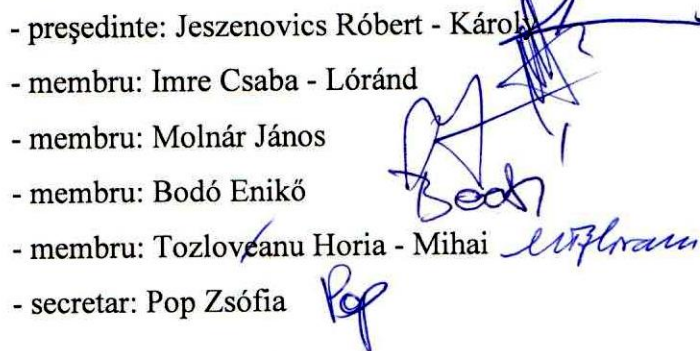 - președinte: Jeszenovics Róbert - Károly
- membru: Imre Csaba - Lóránd
- membru: Molnár János
- membru: Bodó Enikő
- membru: Tozloveanu Horia - Mihai
- secretar: Pop Zsófia Pop